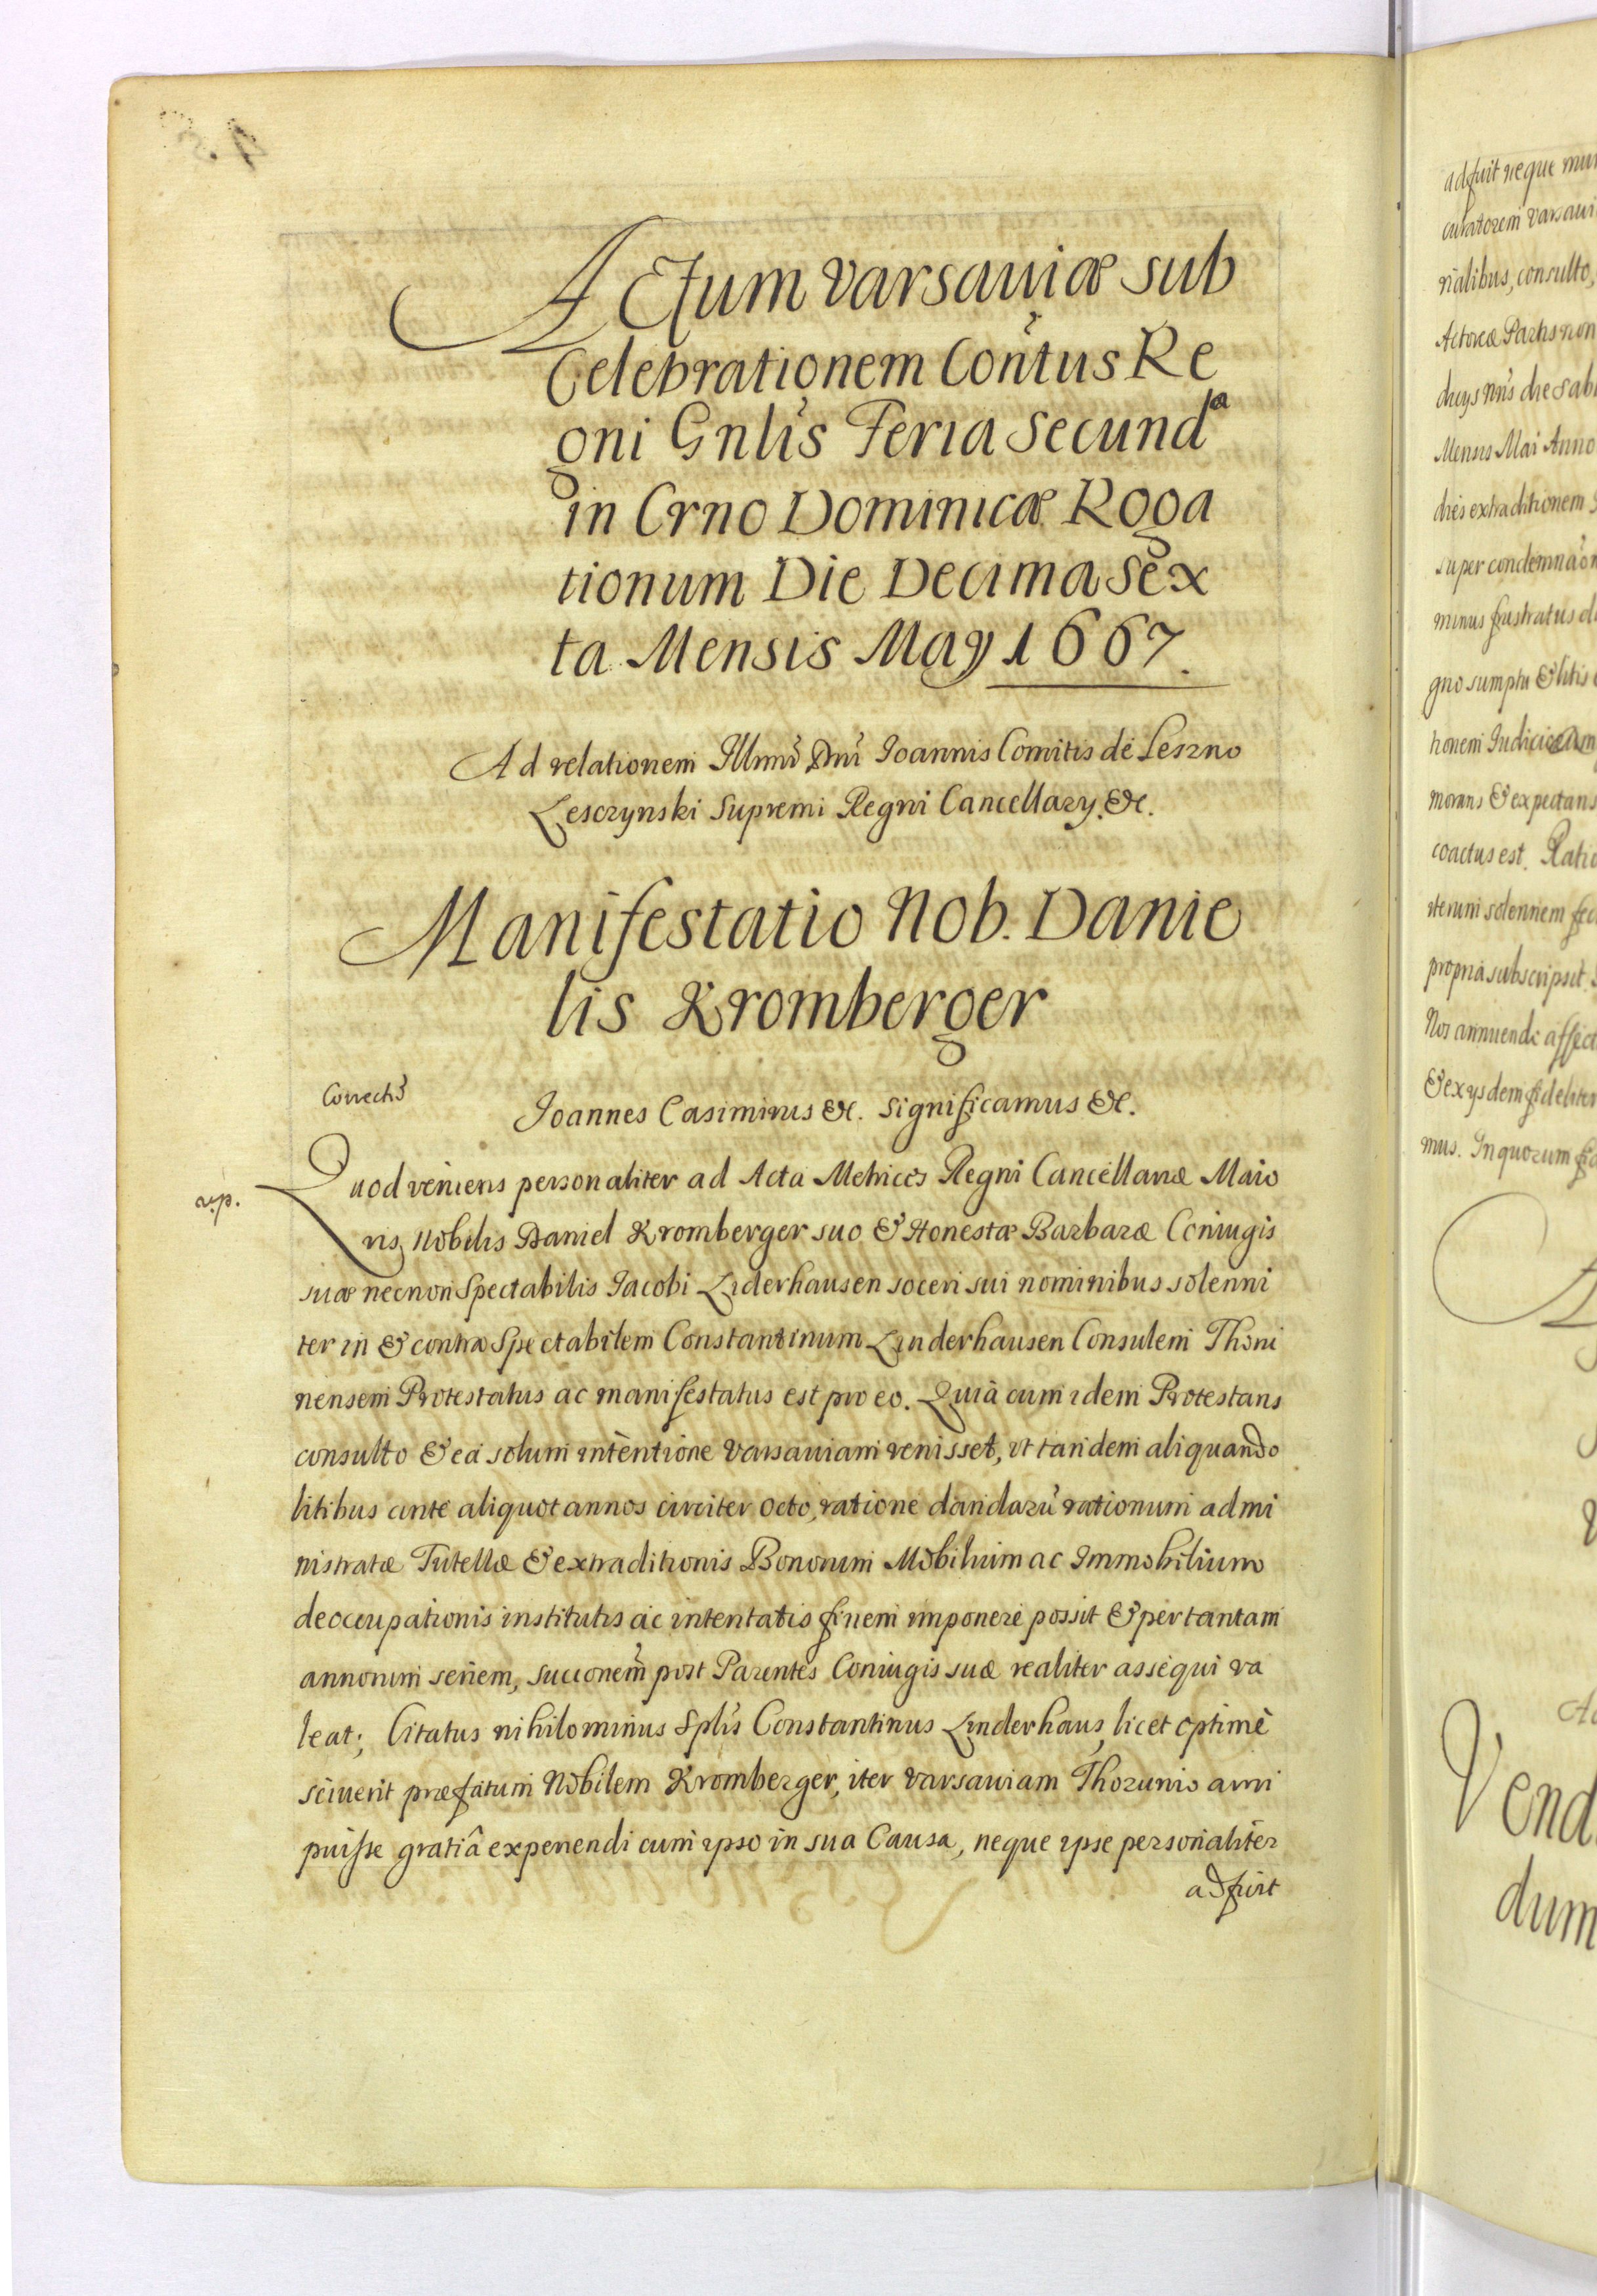 Actum Varsauiæ sub
Celebrationem Conv̄tus Re
gni Gnlis Feria Secunda
in Crno Dominicæ Roga
tionum Die Decima Sex
ta Mensis May 1667.
Ad relationem Illmi Dni Joannis Comitis de Leszno
Lesczynski Supremi Regni Cancellarÿ. &c.
Manifestatio Nob. Danie
lis Kromberger
Correct͂
Joannes Casimirus &c. significamus &c.
rp.
Quod veniens personaliter ad Acta Metrices Regni Cancellariæ Maio
ris, Nobilis Daniel Kromberger suo & Honestæ Barbaræ Coniugis
suæ necnon Spectabilis Jacobi Liderhausen soceri sui nominibus solenni
ter in & contra Spectabilem Constantinum Linderhausen Consulem Thoru
nensem Protestatus ac manifestatus est pro eo. Quià cum idem Protestans
consulto & eá solum intentione Varsauiam venisset, vt tandem aliquando
litibus ante aliquot annos circiter octo, ratione dandarū rationum admi
nistratæ Tutellæ & extraditionis Bonorum Mobilium ac Immobilium
deoccupationis institutis ac intentatis finem imponere possit & per tantam
annorum seriem, succonem post Parentes Coniugis suæ realiter assequi va
leat; Citatus nihilominus Splis Constantinus Linderhaus, licet optimè
sciuerit præfatum Nobilem Kromberger, iter Varsauiam Thorunio arri
puisse gratiâ experiendi cum ipso in sua Causa, neque ipse personaliter
adfuit
adfuit neque
Varsaui
rialibus, consulto,
Actoreæ Partis non
die Sab
Mensis Mai Anno
extraditionem
super
minus frustratus
gno sumptu & litis
tionem
morans & expectans
coactus est.
iterum solennem
propria subscripsit.
Nos annuendo
& exÿsdem fideliter
mus. In quorum
Vend
dum